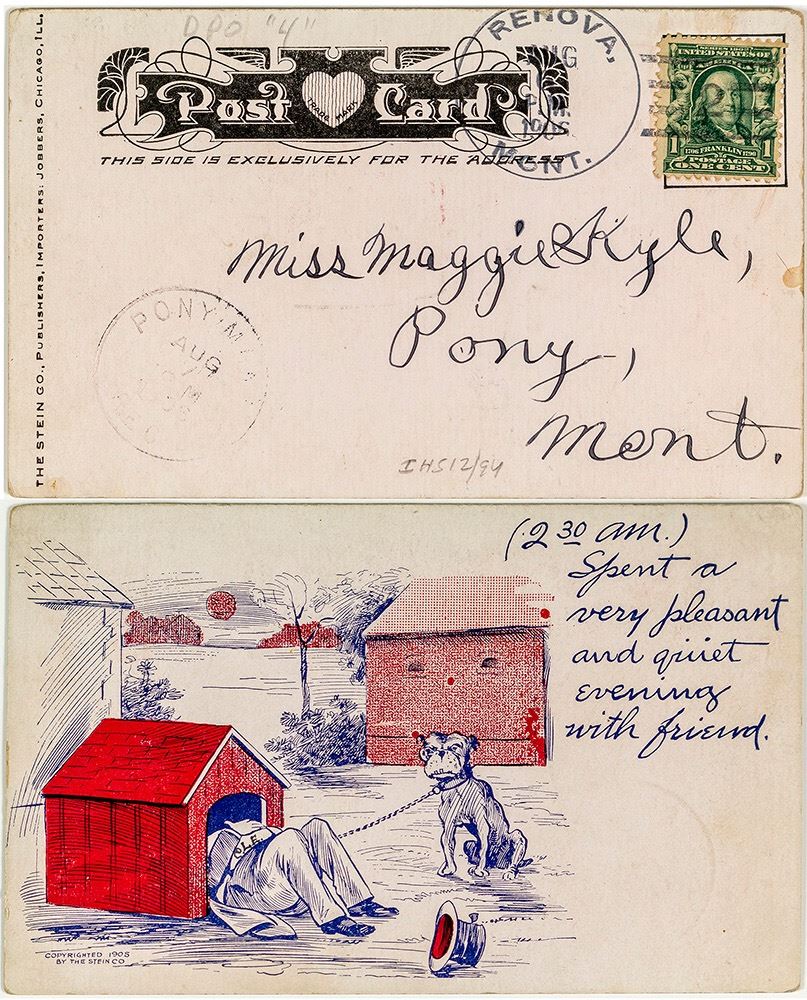 DPO "4"
THE STEIN CO., PUBLISHERS, IMPORTERS, JOBBERS, CHICAGO, ILL.
Post Card
TRADE MARK
THIS SIDE IS EXCLUSIVELY FOR THE ADDRESS
RENOVA,
AUG
P.M.
MONT.
SERIES 1902
UNITED STATES OF
1706 FRANKLIN 1790
1 POSTAGE 1
ONE CENT
Miss Maggie Kyle,
Pony,
Mont.
PONY
AUG
IHS12/94
(2 30 am.)
Spent a
very pleasant
and quiet
evening
with friend.
COPYRIGHTED 1905
BY THE STEIN CO